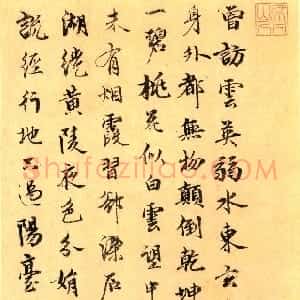 曾訪雲英弱水東玄
身外都無物顛倒乾坤
一碧桃花似白雲望中
未有烟霞習欲深石
湖繞黃陵衣色分娟
說經行地不過陽臺
Shufazilias.com